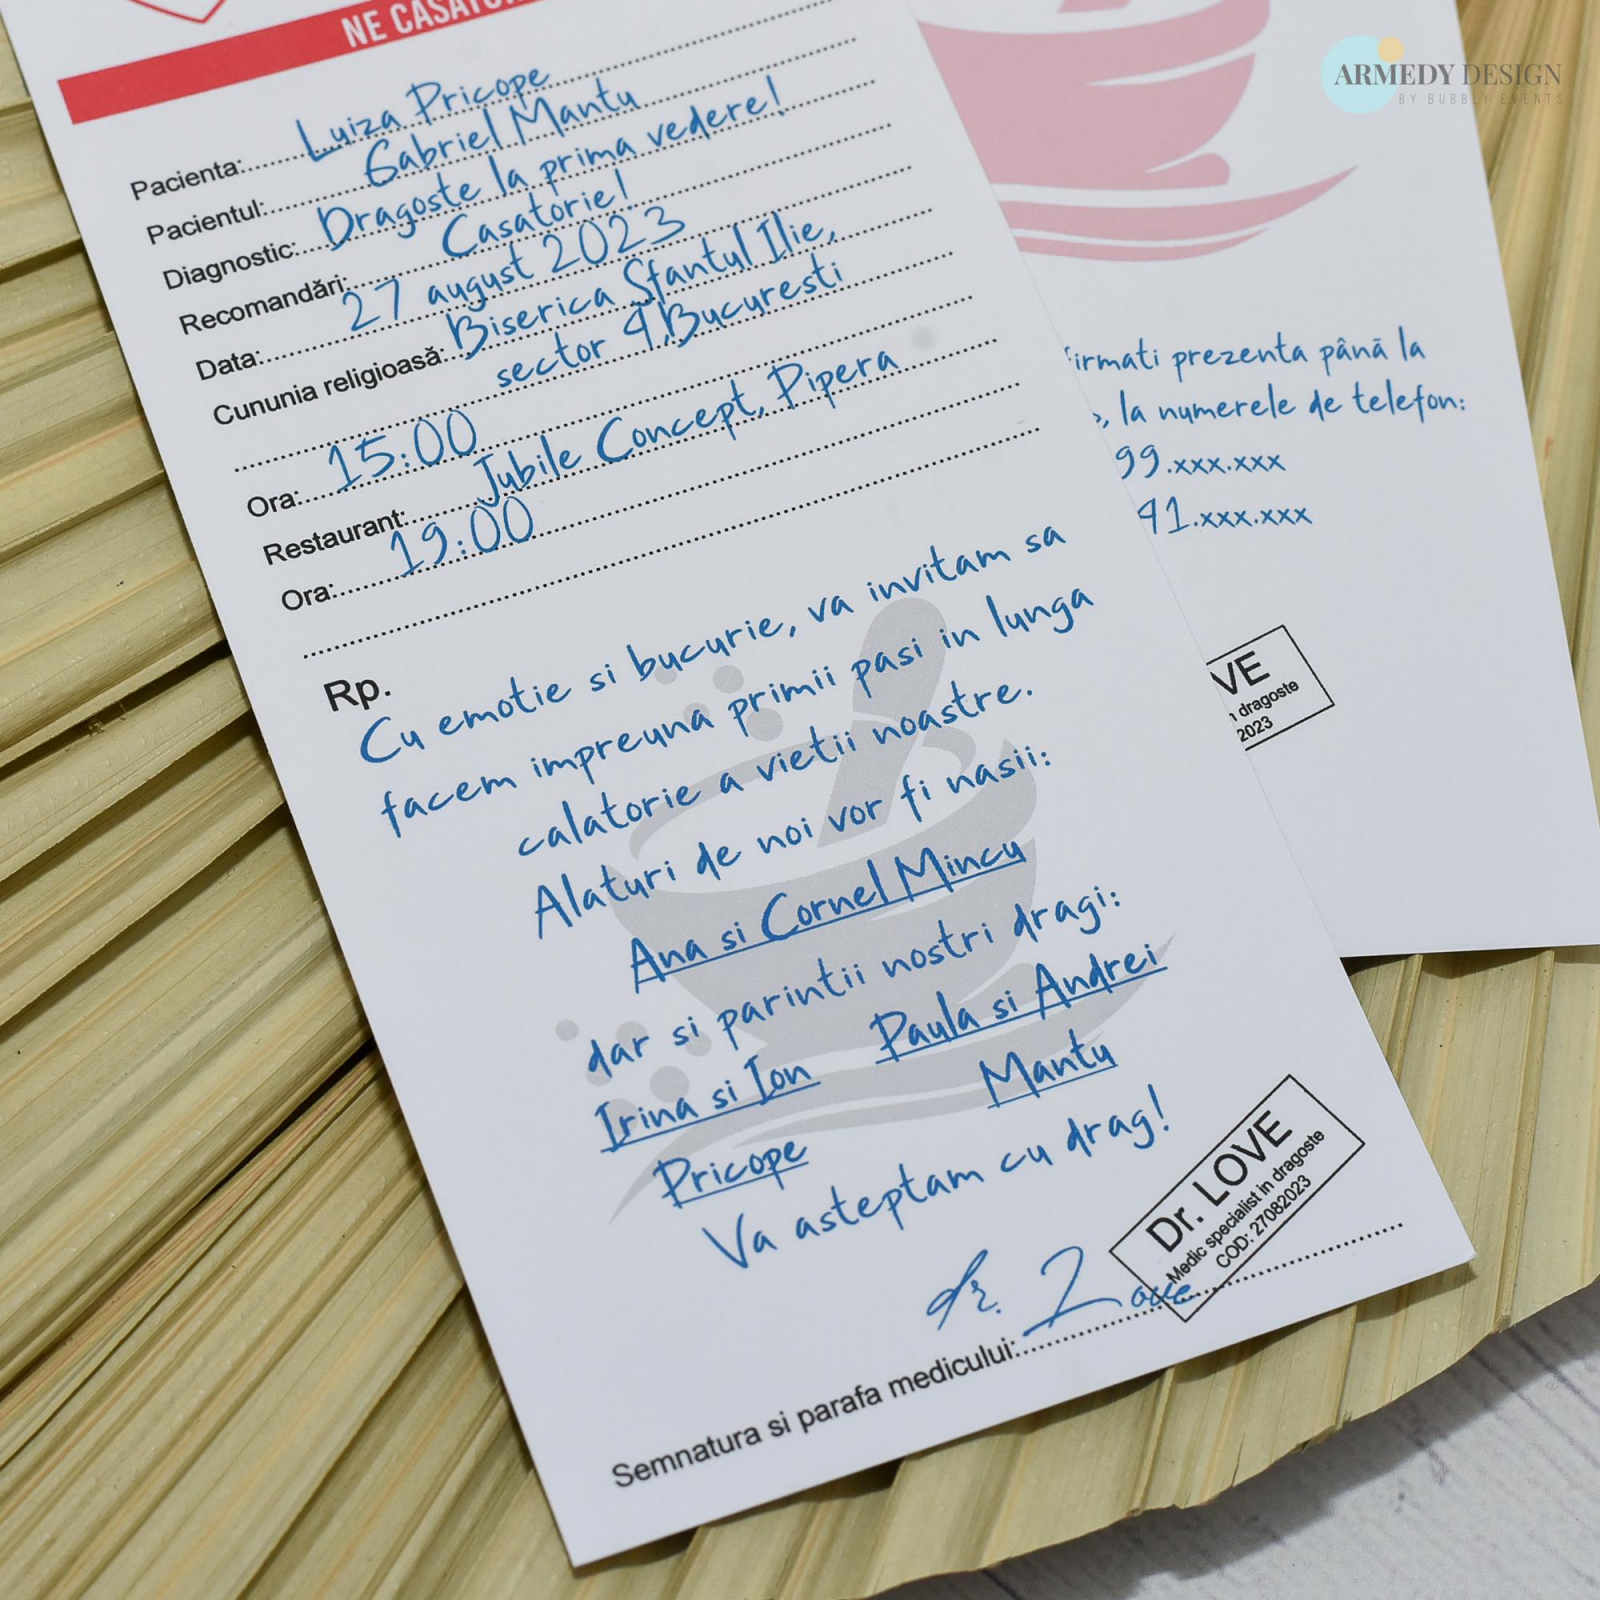 NE CASATO
Pacienta: Luiza Pricope
Pacientul: Gabriel Mantu
Diagnostic: Dragoste la prima vedere!
Recomandări: Casatorie!
Data: 27 august 2023
Cununia religioasă: Biserica Sfantul Ilie,
sector 4, Bucuresti
Ora: 15:00
Restaurant: Jubile Concept, Pipera
Ora: 19:00
Rp.
Cu emotie si bucurie, va invitam sa
facem impreuna primii pasi in lunga
calatorie a vietii noastre.
Alaturi de noi vor fi nasii:
Ana si Cornel Mincu
dar si parintii nostri dragi:
Irina si Ion Paula si Andrei
Pricope Mantu
Va asteptam cu drag!
Dr. LOVE
Medic specialist in dragoste
COD: 27082023
Dr. Love
Semnatura si parafa medicului:
ARMEDY DESIGN
BY BUBBLY EVENTS
firmati prezenta până la
, la numerele de telefon:
99.xxx.xxx
41.xxx.xxx
VE
n dragoste
2023